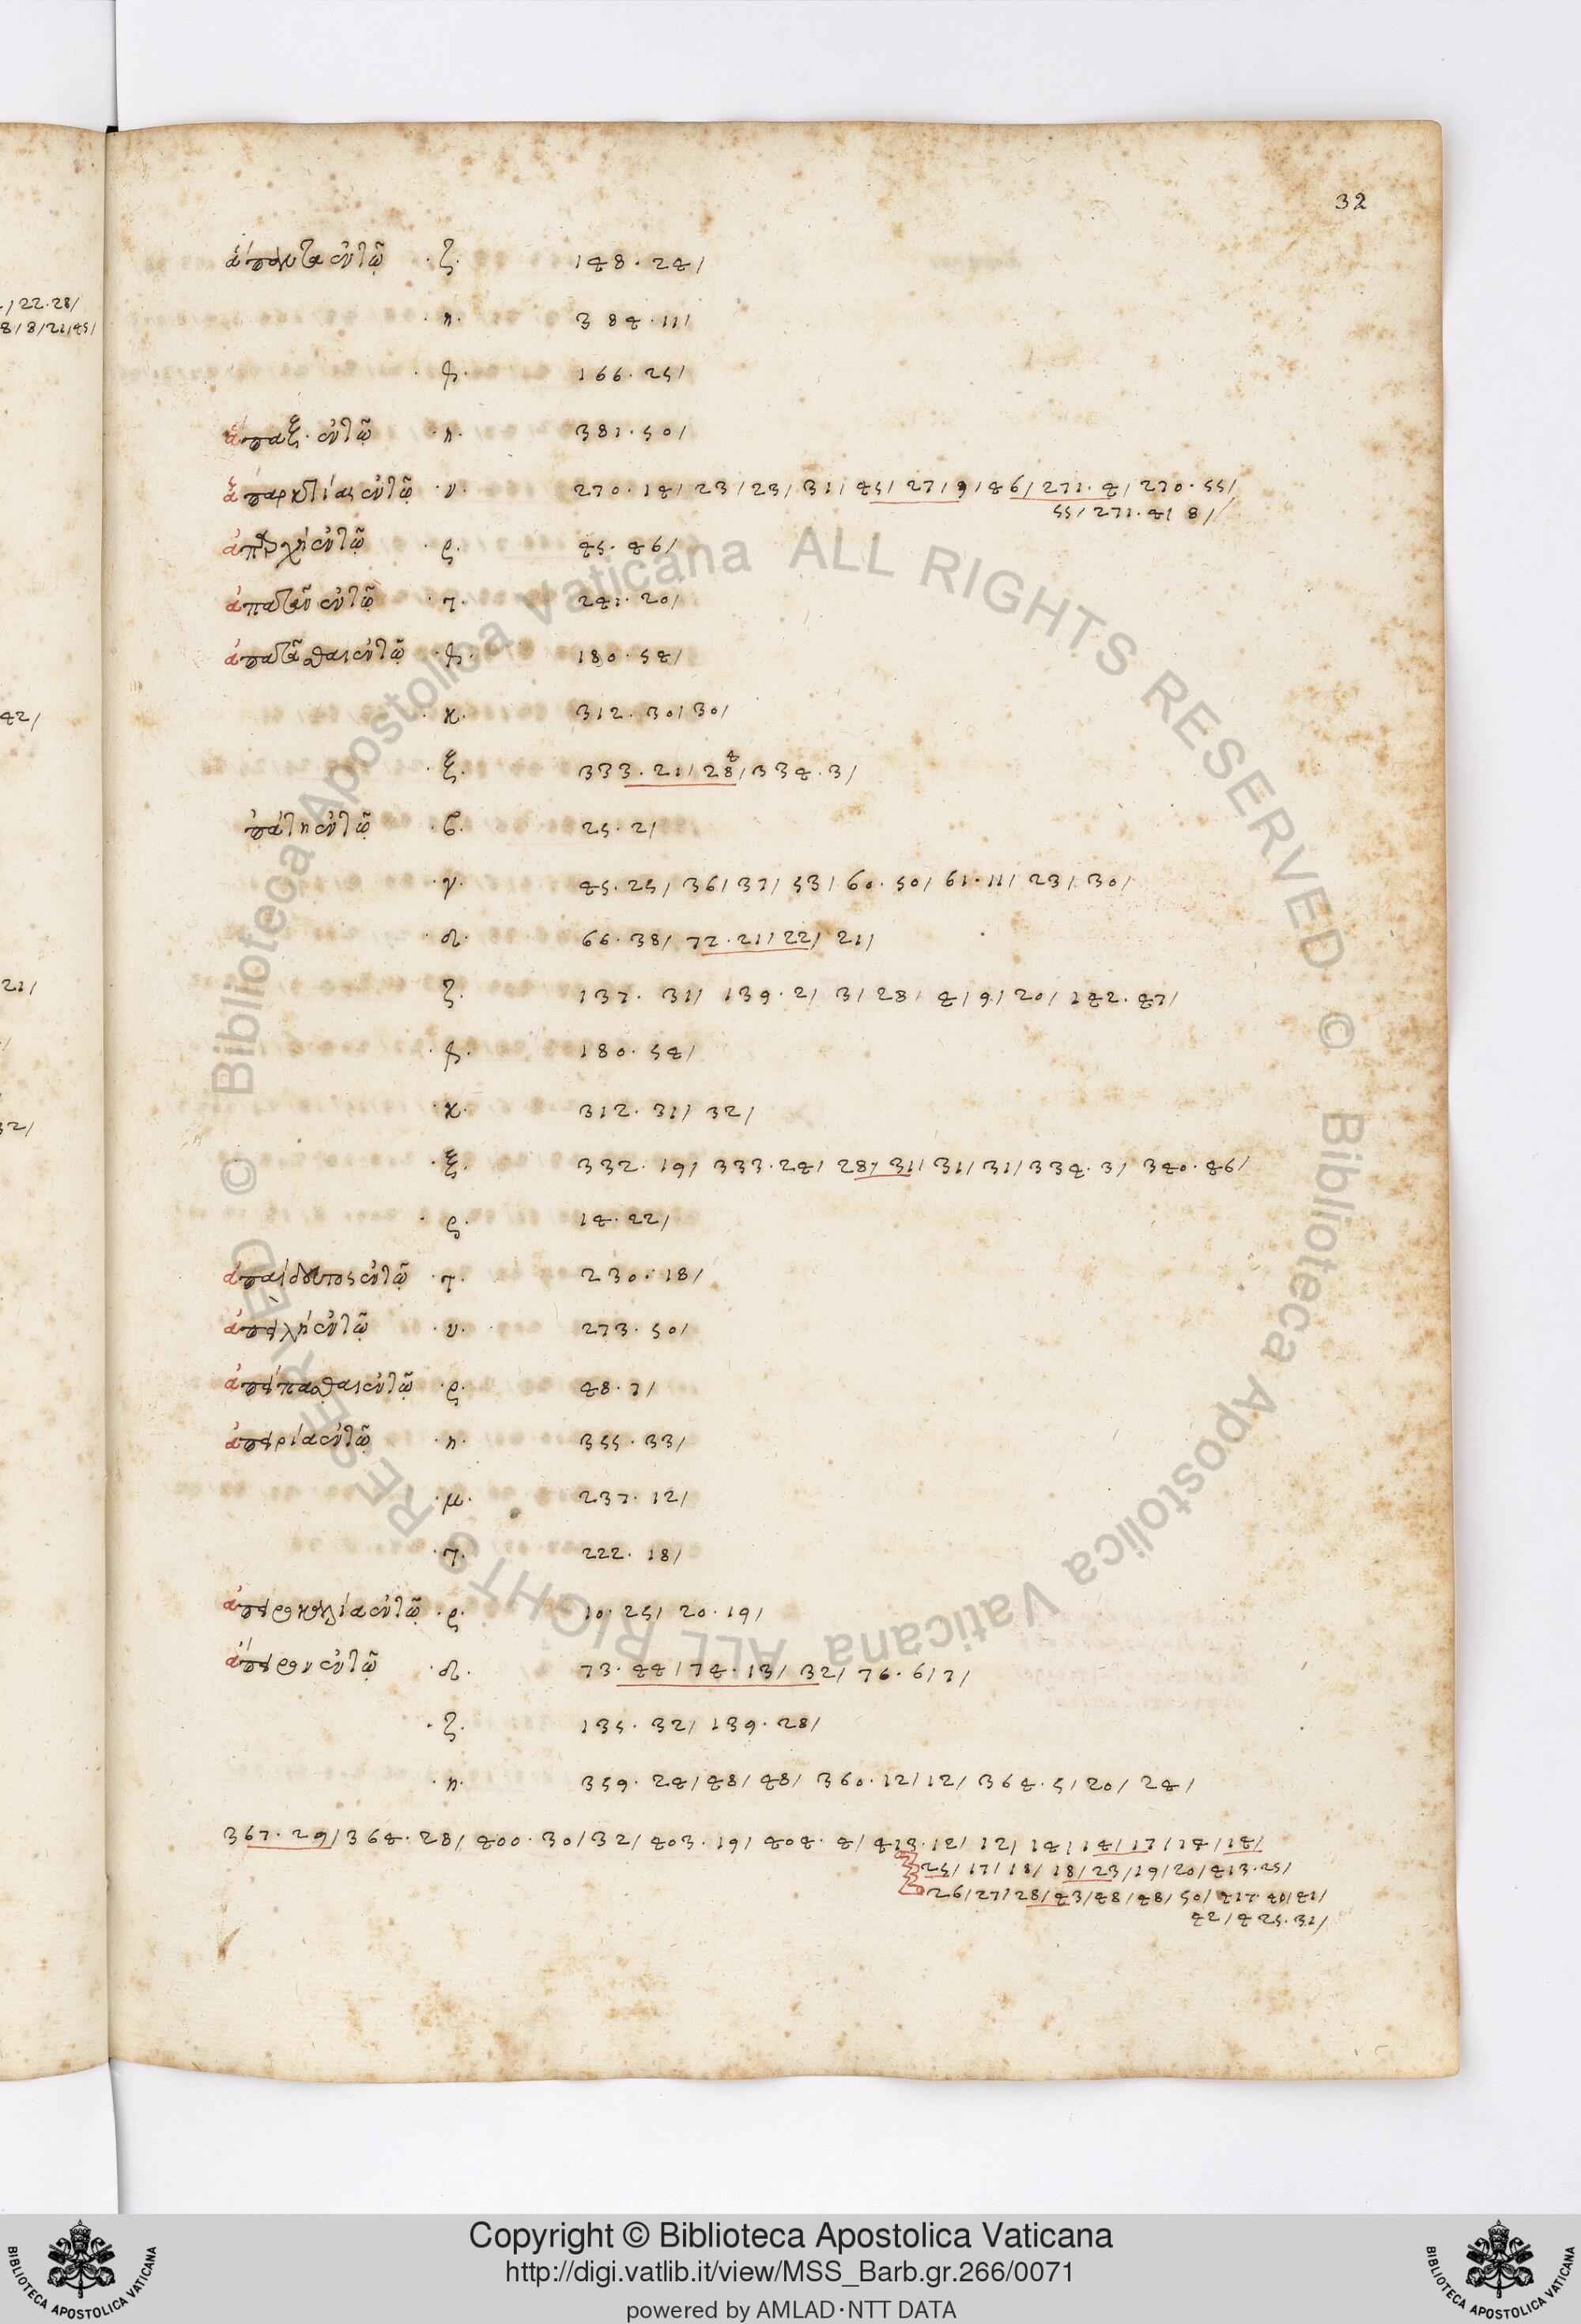 32
/22.28/
8/8/21/45/
ἅπαντα ἐν τῶ .ζ. 148.24/
.η. 384.11/
.θ. 166.25/
ἅπαξ. ἐν τῶ .η. 381.50/
ἀπαρκτίας ἐν τῶ .ν. 270.14/23/23/31/45/27/9/46/271.4/270.55/
55/271.4/8/
ἀπαρχὴ ἐν τῶ .ς. 45.46/
ἀπατᾶν ἐν τῶ .τ. 241.20/
ἀπατᾶσθαι ἐν τῶ .θ. 180.54/
42/
.κ. 312.30/30/
.ξ. 333.21/28/334.3/
4
ἀπάτη ἐν τῶ .β. 25.2/
.γ. 45.25/36/37/53/60.50/61.11/23/30/
.δ. 66.38/72.21/22/21/
21/
.ζ. 137.31/139.2/3/28/4/9/20/142.47/
.θ. 180.54/
.κ. 312.31/32/
32/
.ξ. 332.19/333.24/28/31/31/31/334.3/340.46/
.ς. 14.22/
ἀπαίδευτος ἐν τῶ .τ. 230.18/
ἀπειλὴ ἐν τῶ .υ. 273.50/
ἀπέπασθαι ἐν τῶ .ς. 48.7/
ἀπειρία ἐν τῶ .η. 355.33/
.μ. 237.12/
.τ. 222.18/
ἀπειροκαλία ἐν τῶ .ς. 10.25/20.19/
ἄπειρον ἐν τῶ .δ. 73.44/74.13/32/76.6/7/
.ζ. 135.32/139.28/
.η. 359.24/48/48/360.12/12/364.5/20/24/
367.29/364.28/400.30/32/403.19/404.4/413.12/12/14/14/17/14/14/
25/17/18/18/23/19/20/413.25/
26/27/28/43/48/48/50/417.40/41/
42/425.31/
Biblioteca Apostolica Vaticana ALL RIGHTS RESERVED ©
Biblioteca Apostolica Vaticana ALL RIGHTS RESERVED ©
Copyright © Biblioteca Apostolica Vaticana
http://digi.vatlib.it/view/MSS_Barb.gr.266/0071
powered by AMLAD·NTT DATA
BIBLIOTECA APOSTOLICA VATICANA
BIBLIOTECA APOSTOLICA VATICANA